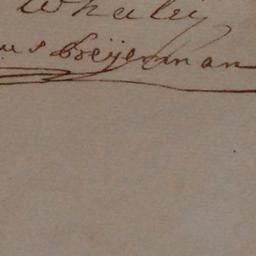 Whaley
us Breijerman